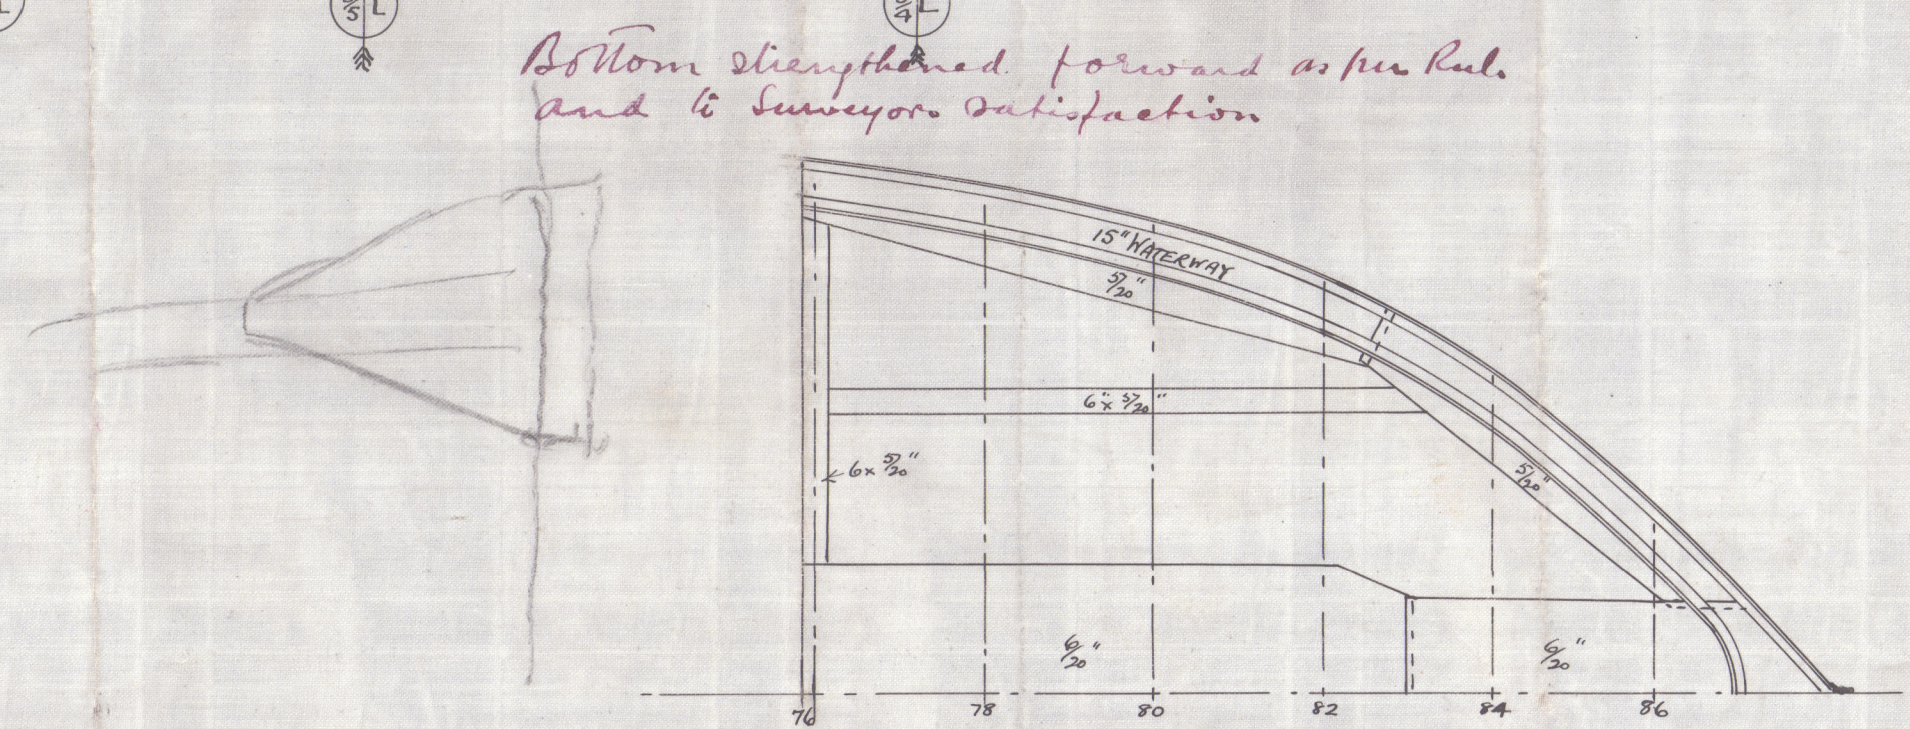 L
5 L
3/4 L
Bottom strengthened forward as per Rule
and to Surveyors satisfaction
15" WATERWAY
5/20"
6" x 5/20"
6 x 5/20"
5/20"
6/20"
6/20"
76 78 80 82 84 86